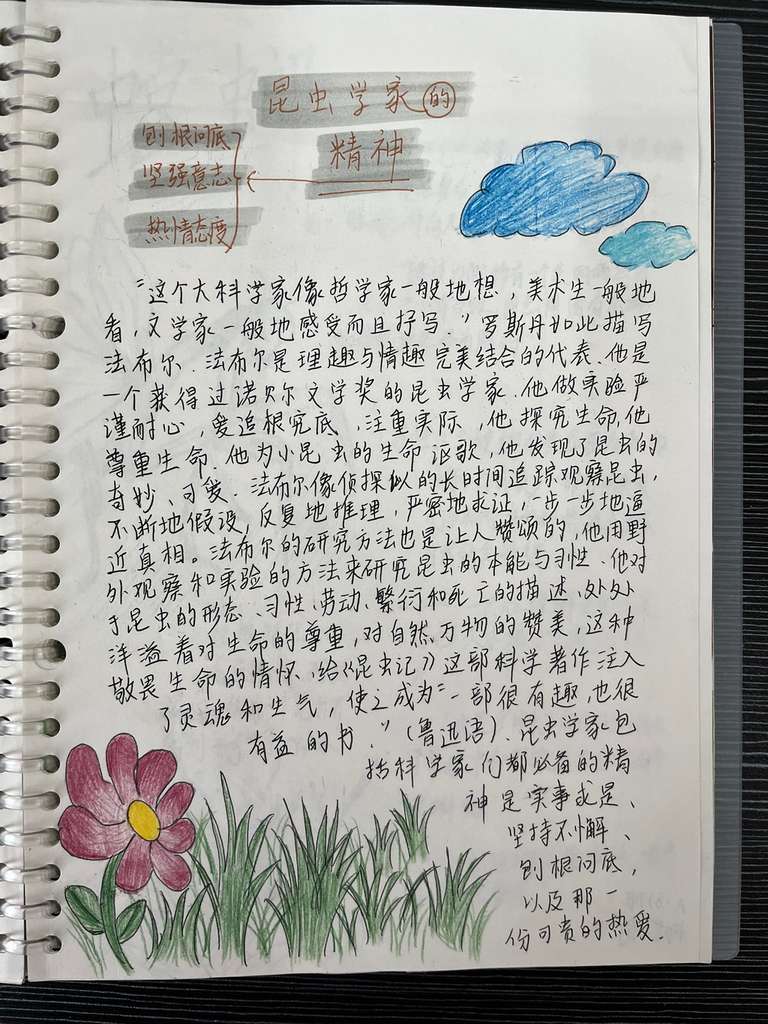 昆虫学家的
精神
刨根问底
坚强意志
热情态度
“这个大科学家像哲学家一般地想，美术生一般地
看，文学家一般地感受而且抒写.”罗斯丹如此描写
法布尔.法布尔是理趣与情趣完美结合的代表.他是
一个获得过诺贝尔文学奖的昆虫学家.他做实验严
谨耐心，爱追根究底，注重实际，他探究生命，他
尊重生命.他为小昆虫的生命讴歌，他发现了昆虫的
奇妙、可爱.法布尔像侦探似的长时间追踪观察昆虫，
不断地假设，反复地推理，严密地求证，一步一步地逼
近真相。法布尔的研究方法也是让人赞颂的，他用野
外观察和实验的方法来研究昆虫的本能与习性.他对
于昆虫的形态、习性、劳动、繁衍和死亡的描述，处处
洋溢着对生命的尊重，对自然万物的赞美，这种
敬畏生命的情怀，给《昆虫记》这部科学著作注入
了灵魂和生气，使之成为“一部很有趣，也很
有益的书.”（鲁迅语）.昆虫学家包
括科学家们都必备的精
神是实事求是、
坚持不懈、
刨根问底，
以及那一
份可贵的热爱.